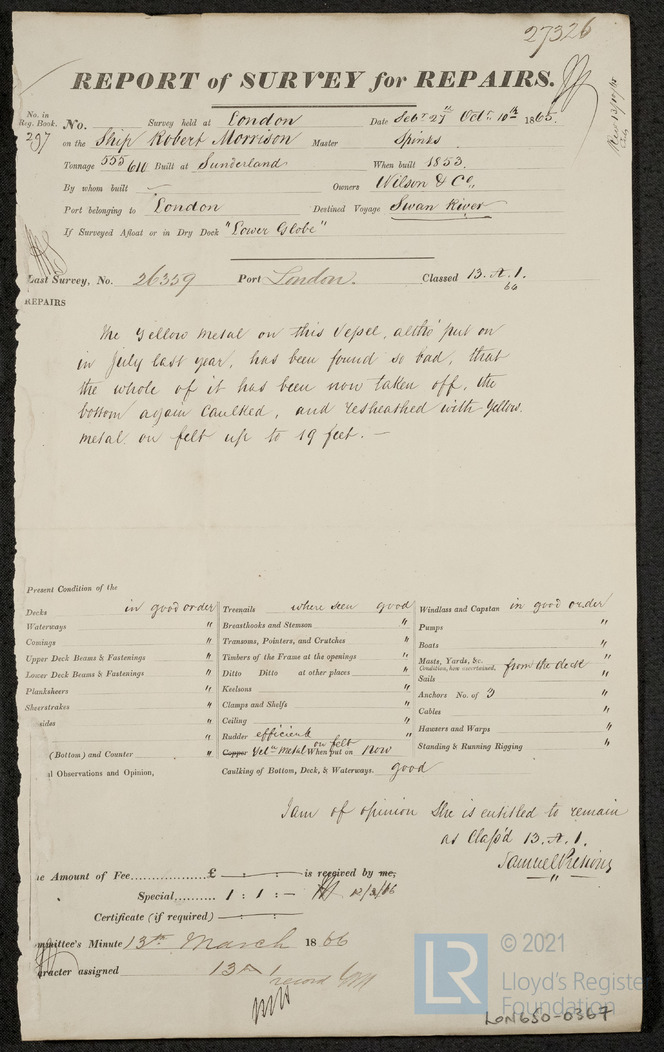 27326
REPORT of SURVEY for REPAIRS.
No. in Reg. Book. 297
No. Survey held at London Date Sept 27th Octr 10th 1865.
on the Ship Robert Morrison Master Spinks
Tonnage 555 610 Built at Sunderland When built 1853.
By whom built Owners Wilson & Co.,
Port belonging to London Destined Voyage Swan River
If Surveyed Afloat or in Dry Dock "Lower Globe"
Last Survey, No. 26359 Port London. Classed 13. A. 1.
66
REPAIRS
The Yellow metal on this Vessel, altho' put on
in July last year, has been found so bad, that
the whole of it has been now taken off, the
bottom again caulked, and resheathed with Yellow
metal on felt up to 19 feet. —
Present Condition of the
Decks in good order
Waterways "
Comings "
Upper Deck Beams & Fastenings "
Lower Deck Beams & Fastenings "
Planksheers "
Sheerstrakes "
sides "
(Bottom) and Counter "
al Observations and Opinion,
Treenails where seen good
Breasthooks and Stemson "
Transoms, Pointers, and Crutches "
Timbers of the Frame at the openings "
Ditto Ditto at other places "
Keelsons "
Clamps and Shelfs "
Ceiling "
Rudder efficient "
Copper Yel. metal on felt When put on Now
Caulking of Bottom, Deck, & Waterways. good
Windlass and Capstan in good order
Pumps "
Boats "
Masts, Yards, &c. from the deck "
Condition, how ascertained,
Sails "
Anchors No. of 3 "
Cables "
Hawsers and Warps "
Standing & Running Rigging "
I am of opinion She is entitled to remain
as Class'd 13. A. 1.
Samuel
he Amount of Fee £ : : is received by me,
Special 1 : 1 : — 12/3/66
Certificate (if required) : :
mmittee's Minute 13th March 1866
aracter assigned 13 A 1
record
LR
© 2021
Lloyd's Register
Foundation
LON650-0367